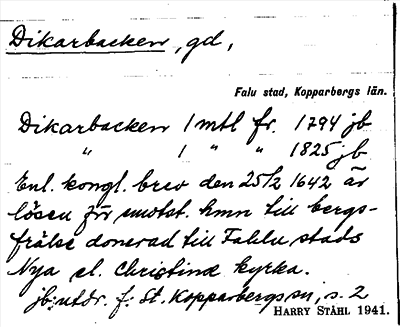 Dikarbacken, gd,
Falu stad, Kopparbergs län.
Dikarbacken 1 mtl fr. 1794 jb
" 1 " " 1825 jb
Enl. kongl. brev den 25/2 1642 är
lösen för motst. hmn till bergs-
frälse donerad till Fahlu stads
Nya el. Christinæ kyrka.
jb:utdr. f: St. Kopparbergs sn, s. 2
HARRY STÅHL 1941.